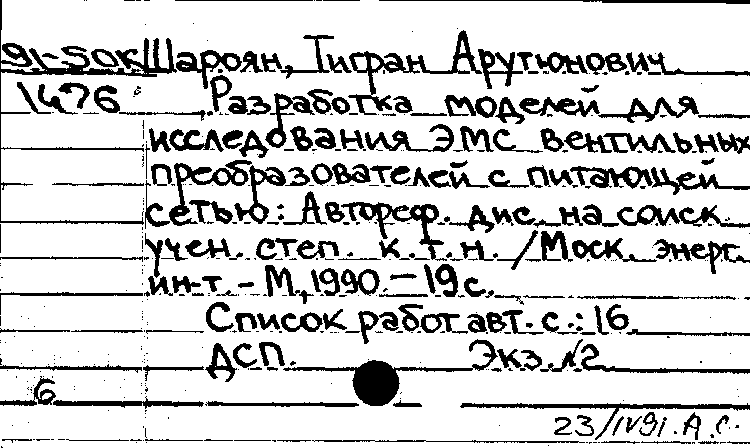 91-50K Шароян, Тигран Арутюнович
1476 Разработка моделей для
исследования ЭМС вентильных
преобразователей с питающей
сетью: Автореф. дис. на соиск.
учен. степ. к.т.н. / Моск. энерг.
ин-т. - М, 1990. - 19 с.
Список работ авт. с.: 16.
ДСП. Экз. №2
6
23/IV91. А.С.